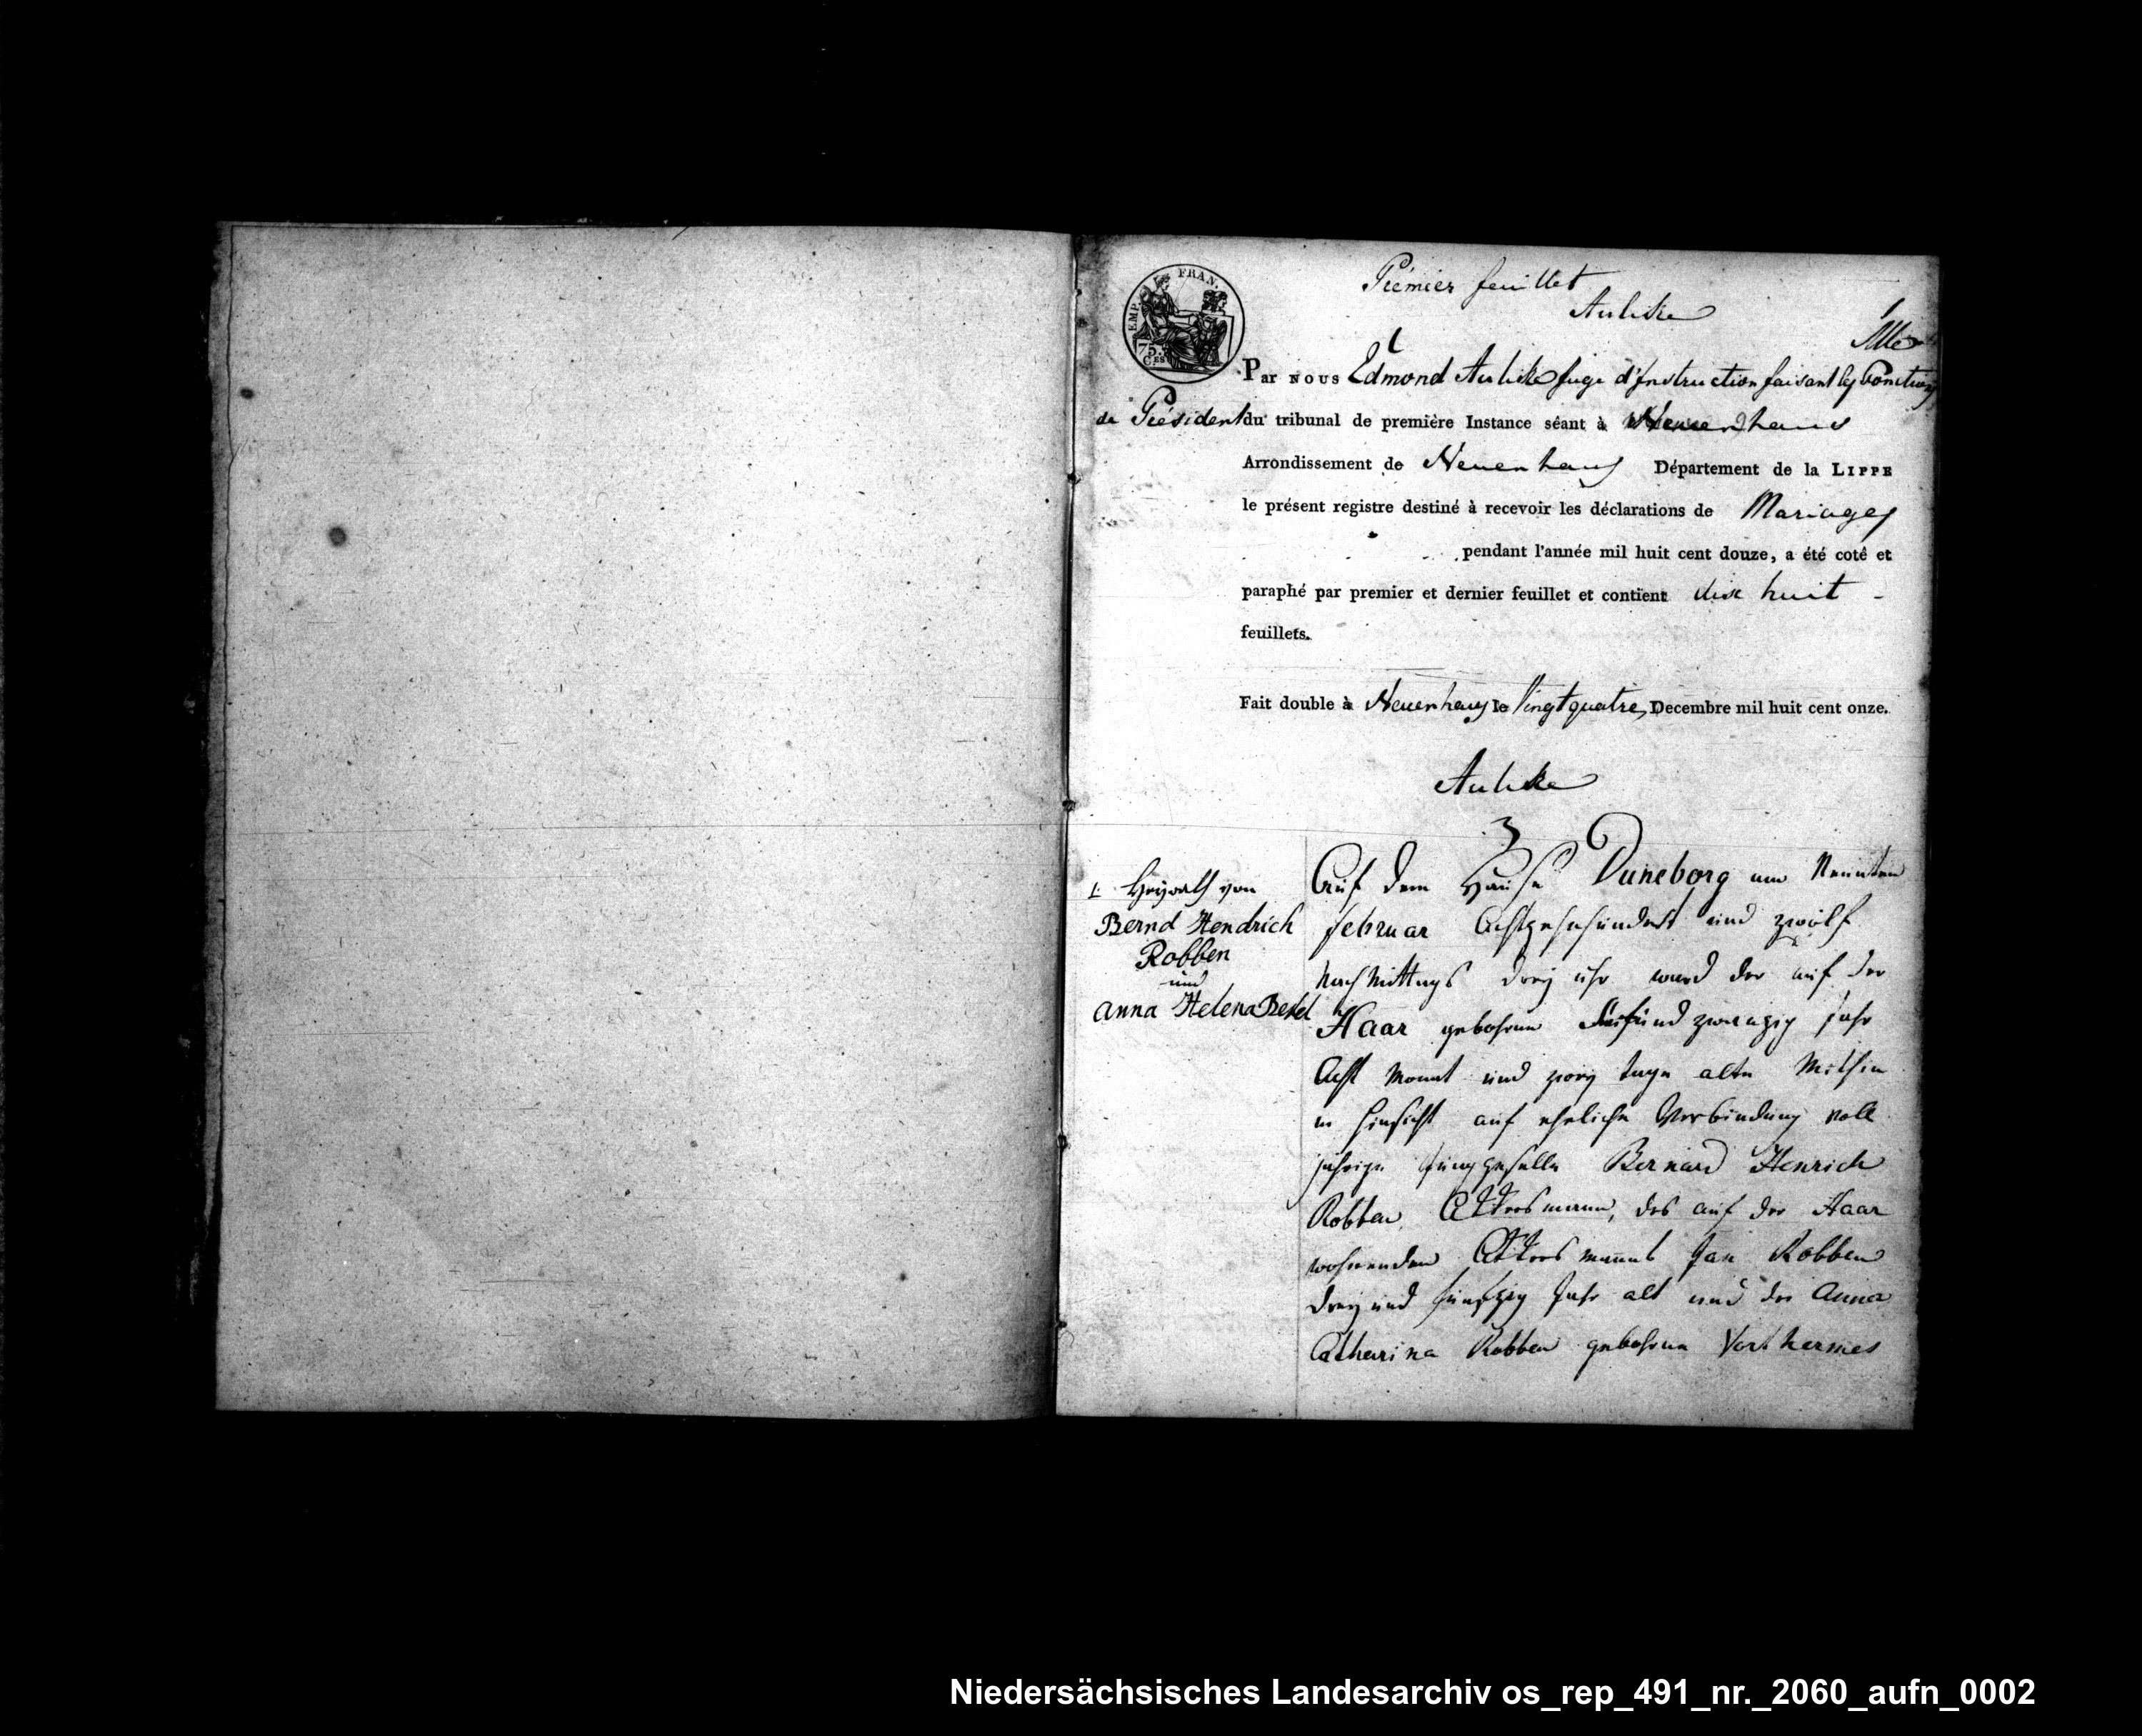 Premier feuillet
Aulike
1
EMP. FRAN.
75.
CES
Par nous Edmond Aulike Juge d'Instruction faisant les Fonctions
de Président du tribunal de première Instance séant à Neuenhaus
Arrondissement de Neuenhaus Département de la LIPPE
le présent registre destiné à recevoir les déclarations de Mariages
pendant l'année mil huit cent douze, a été coté et
paraphé par premier et dernier feuillet et contient dix huit -
feuillets.
Fait double à Neuenhaus le Vingt quatre Decembre mil huit cent onze.
Aulike
1. Heyrath von
Bernd Hendrich
Robben
und
Anna Helena
Auf dem Hause Duneborg am Neunten
februar Achtzehnhundert und zwölf
nachmittags drey uhr ward der auf der
Haar gebohrne und zwanzig jahr
Acht Monat und zwey tage alte Mithin
in hinsicht auf eheliche Verbindung voll
jahrige Junggeselle Bernard Henrich
Robben Ackersmann, des auf der Haar
wohnenden Ackersmanns Jan Robben
drey und fünfzig Jahr alt und der Anna
Catharina Robben gebohrne
Niedersächsisches Landesarchiv os_rep_491_nr._2060_aufn_0002